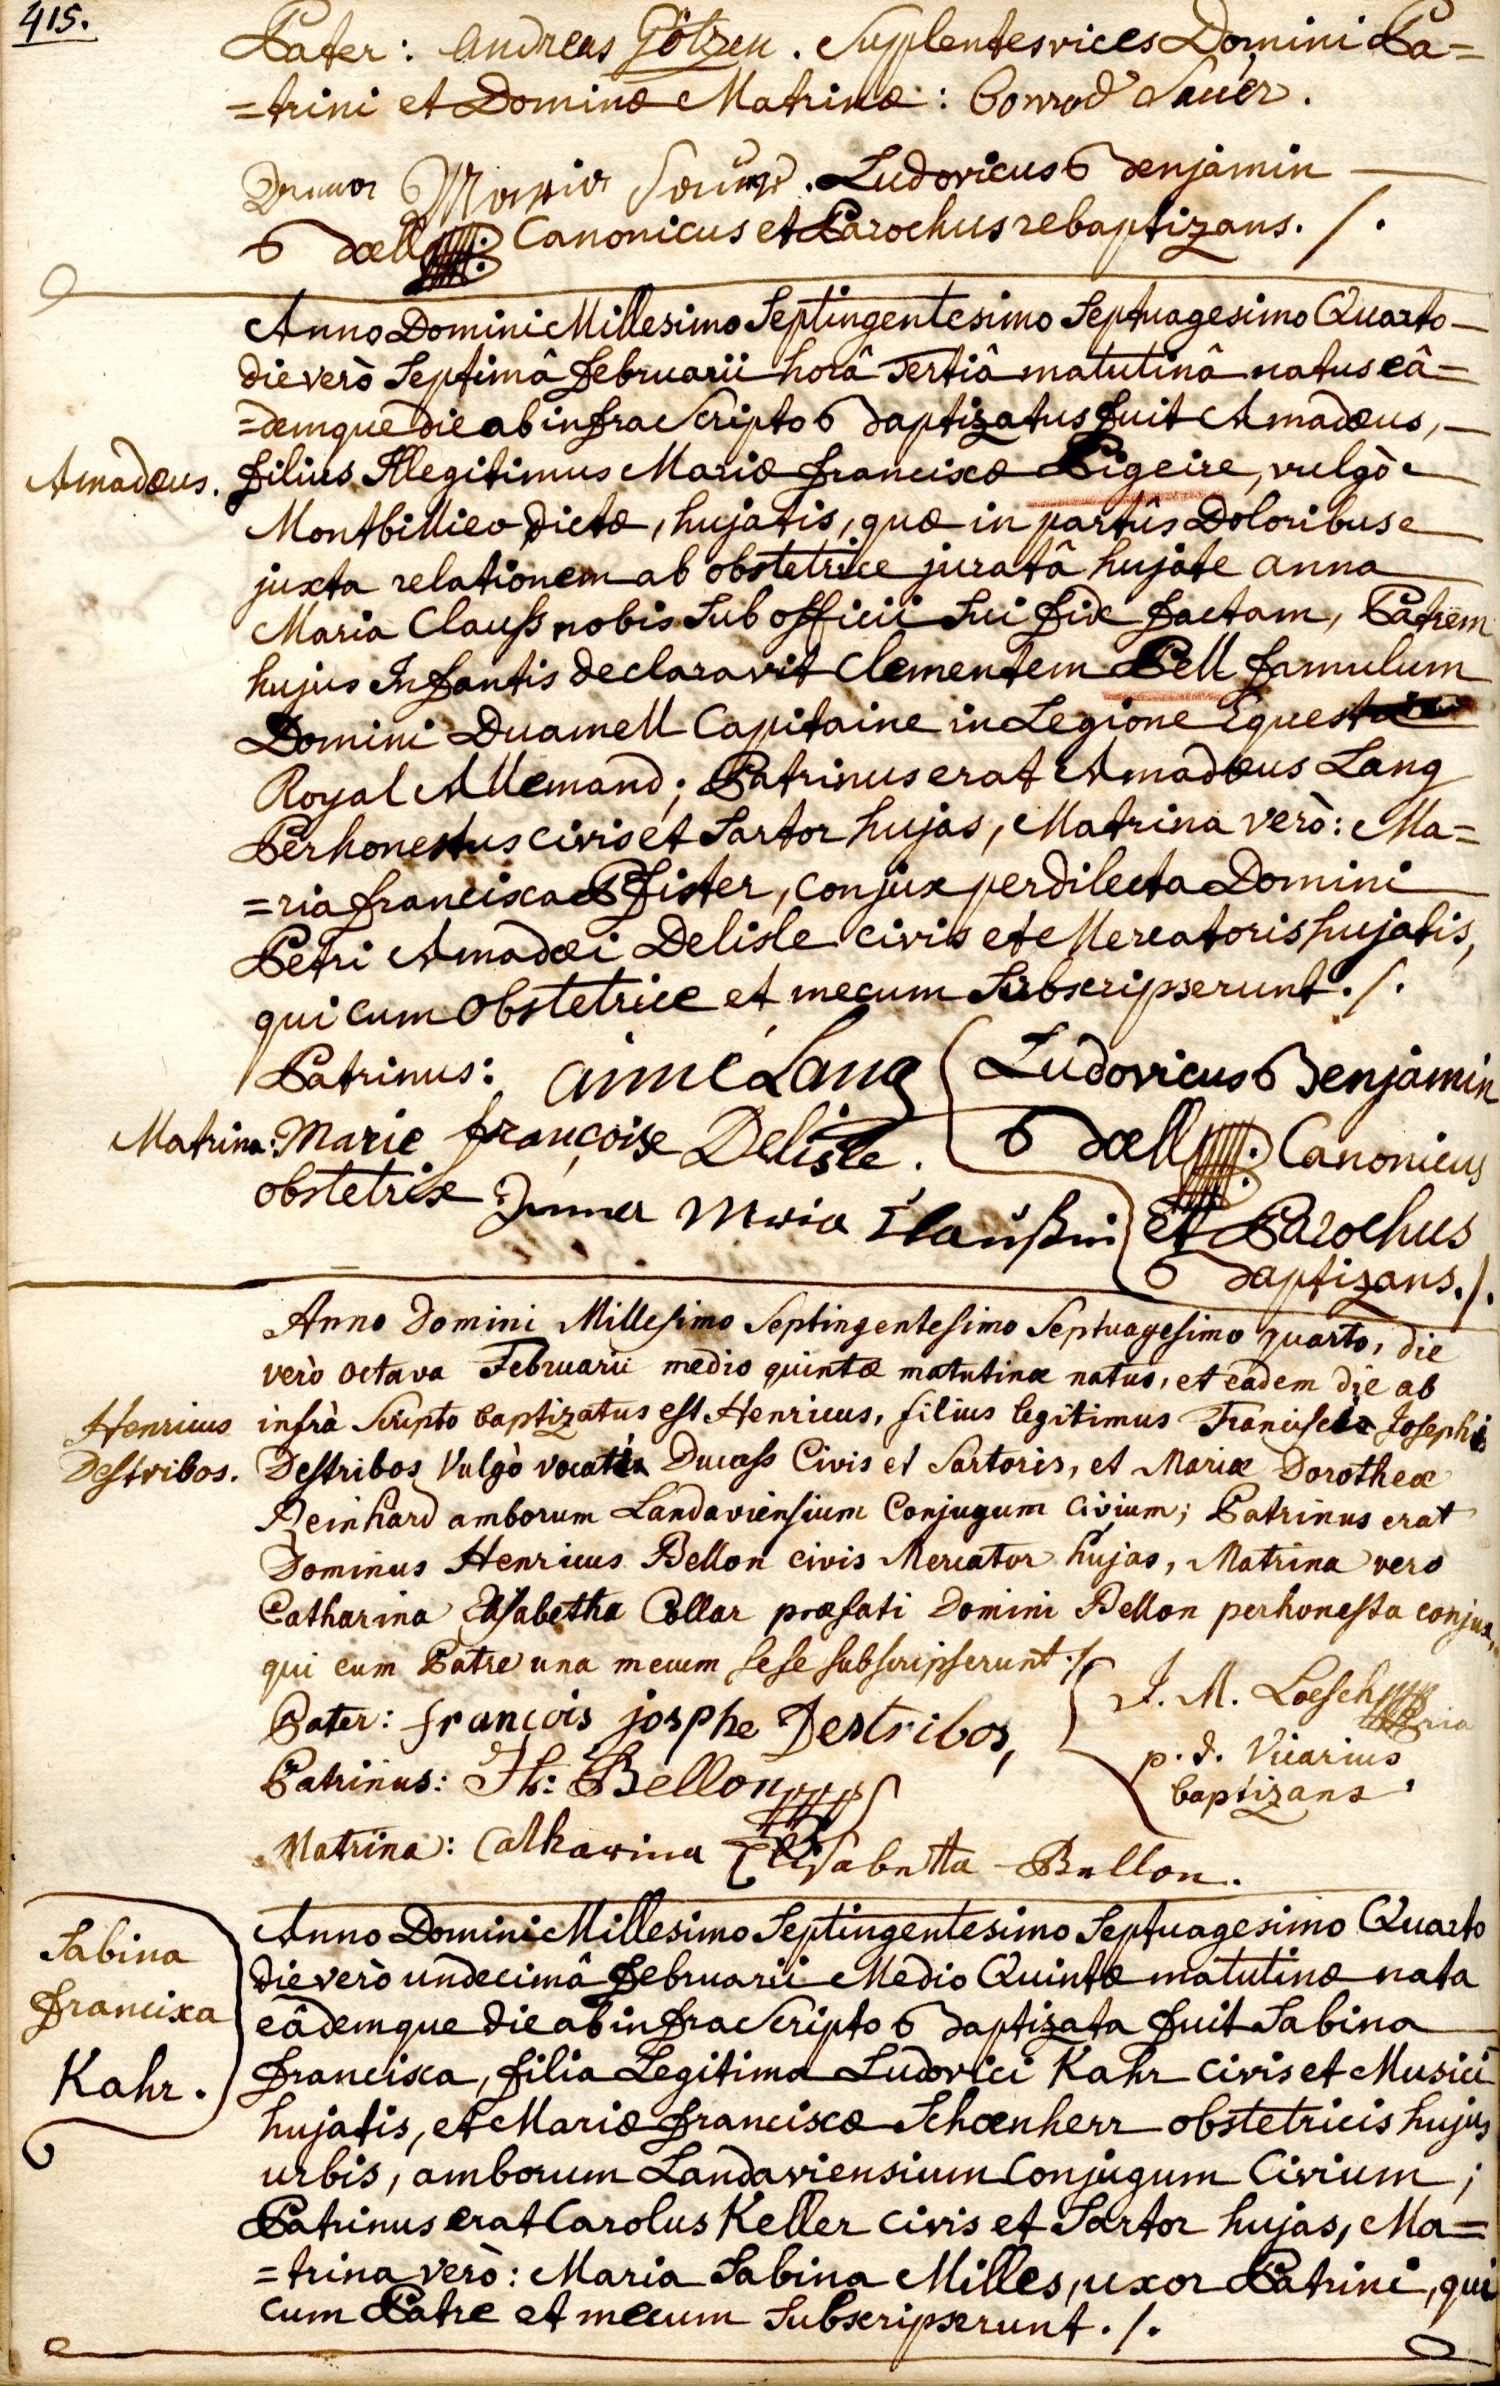 415.
Pater: Andreas Götzen. Supplentes vices Domini Pa=
=trini et Dominæ Matrinæ: Conrad Sauer.
Maria Ludovicus Benjamin
Boell Canonicus et Parochus rebaptizans. /.
Anno Domini Millesimo Septingentesimo Septuagesimo Quarto
die verò Septimâ Februarii horâ Tertiâ matutinâ natus eâ=
=demque die ab infra Scripto Baptizatus fuit Amadæus,
Amadæus. filius Illegitimus Mariæ Franciscæ Pigeire, vulgò
Montbillier dictæ, hujatis, quæ in partûs Doloribus
juxta relationem ab obstetrice juratâ hujate Anna
Maria Clauss nobis Sub officii Sui fide factam, Patrem
hujus Infantis declaravit Clementem Pell famulum
Domini Duamell Capitaine in Legione Equestri
Royal Allemand; Patrinus erat Amadæus Lang
Perhonestus civis et Sartor hujas, Matrina verò: Ma=
=ria Francisca Pfister, conjux perdilecta Domini
Petri Amadæi Delisle civis et Mercatoris hujatis,
qui cum Obstetrice et mecum Subscripserunt. /.
Patrinus: aimé Lang Ludovicus Benjamin
Matrina: Marie françoise Delisle. Boell Canonicus
obstetrix Anna Maria Claußin et Parochus
Baptizans. /.
Anno Domini Millesimo Septingentesimo Septuagesimo quarto, die
verò octava Februarii medio quintæ matutinæ natus, et eadem die ab
Henricus infrà Scripto baptizatus est Henricus, filius legitimus Francisci Josephi
Destribos. Destribos Vulgò vocati Ducass Civis et Sartoris, et Mariæ Dorotheæ
Reinhard amborum Landaviensium Conjugum Civium; Patrinus erat
Dominus Henricus Bellon civis Mercator hujas, Matrina vero
Catharina Elisabetha Collar præfati Domini Bellon perhonesta conjux,
qui cum Patre una mecum sese subscripserunt. /.
Pater: françois josphe Destribos, J. M. Loesch
Patrinus: H: Bellon p. d. Vicarius
baptizans
Matrina: Catharina Elisabetta Bellon.
Anno Domini Millesimo Septingentesimo Septuagesimo Quarto
Sabina die verò undecimâ Februarii Medio Quintæ matutinæ nata
Francisca eâdemque die ab infra Scripto Baptizata fuit Sabina
Kahr. Francisca, filia Legitima Ludovici Kahr civis et Musici
hujatis, et Mariæ Franciscæ Schœnherr obstetricis hujus
urbis, amborum Landaviensium Conjugum Civium;
Patrinus erat Carolus Keller civis et Sartor hujas, Ma=
=trina verò: Maria Sabina Milles, uxor Patrini, qui
cum Patre et mecum Subscripserunt. /.